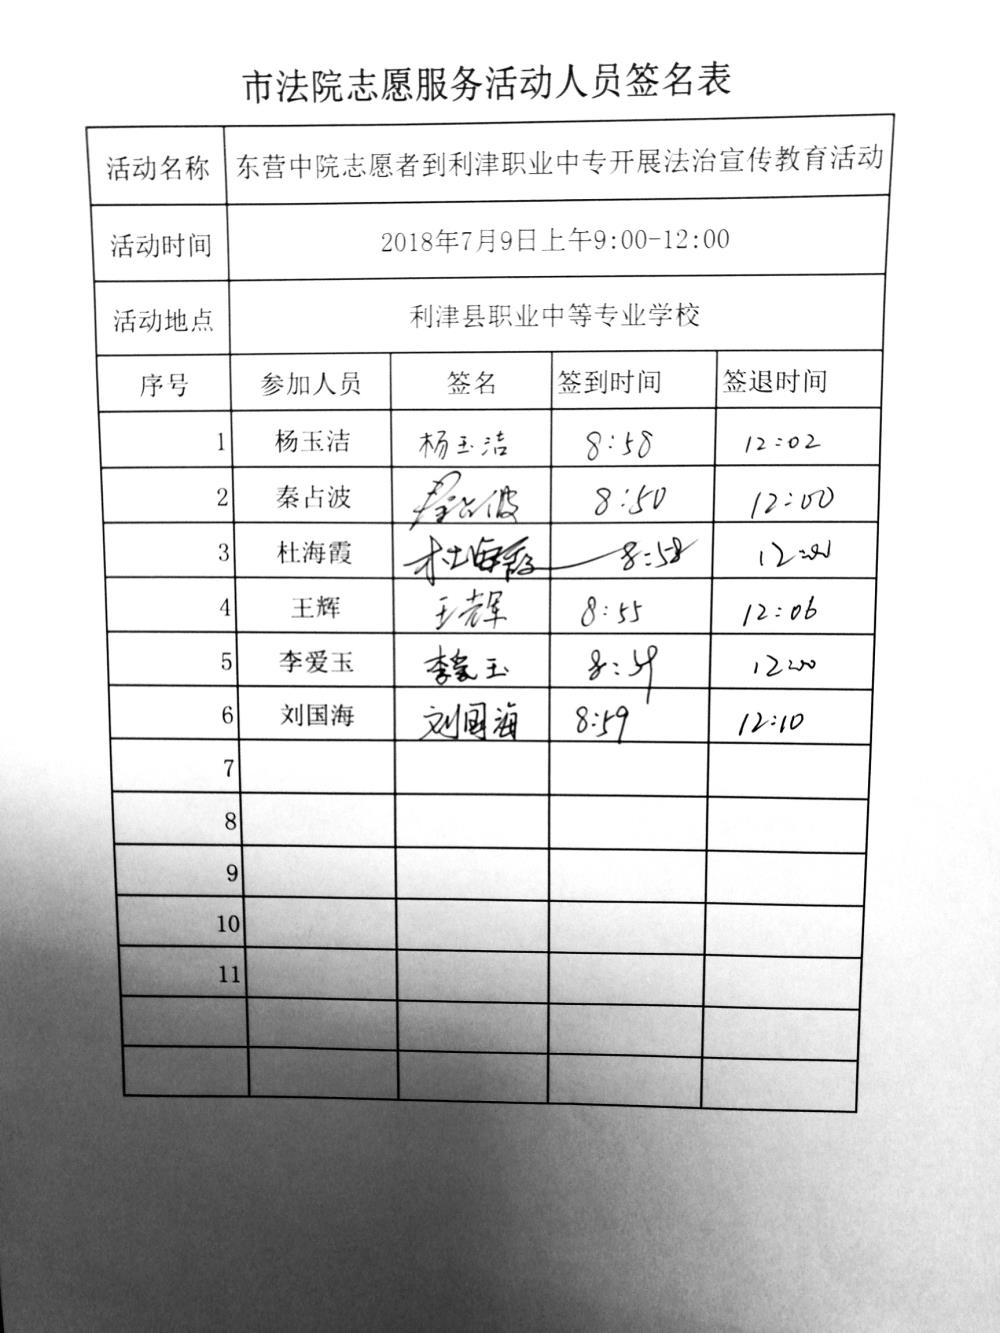 市法院志愿服务活动人员签名表
活动名称 东营中院志愿者到利津职业中专开展法治宣传教育活动
活动时间 2018年7月9日上午9:00-12:00
活动地点 利津县职业中等专业学校
序号 参加人员 签名 签到时间 签退时间
1 杨玉洁 杨玉洁 8:58 12:02
2 秦占波 秦占波 8:50 12:00
3 杜海霞 杜海霞 8:58
4 王辉 王辉 8:55 12:06
5 李爱玉 李爱玉 8:59 12:00
6 刘国海 刘国海 8:59 12:10
7
8
9
10
11